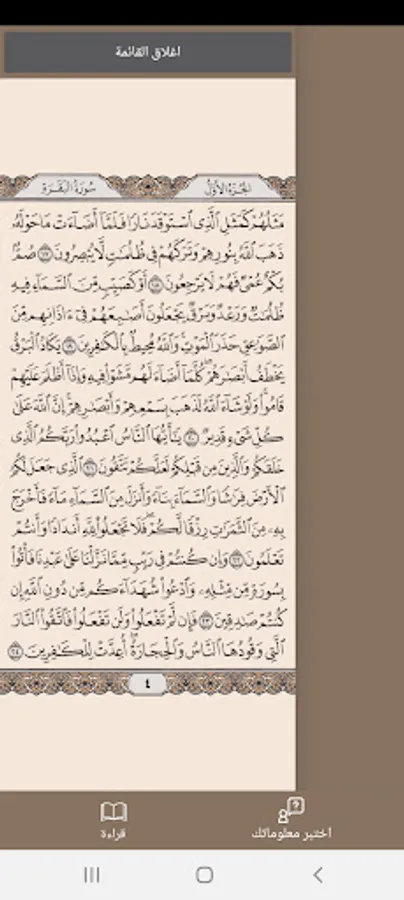 اغلاق القائمة
الجزء الأول
سورة البقرة
مَثَلُهُمْ كَمَثَلِ ٱلَّذِى ٱسْتَوْقَدَ نَارًا فَلَمَّآ أَضَآءَتْ مَا حَوْلَهُۥ
ذَهَبَ ٱللَّهُ بِنُورِهِمْ وَتَرَكَهُمْ فِى ظُلُمَٰتٍ لَّا يُبْصِرُونَ ١٧ صُمٌّۢ
بُكْمٌ عُمْىٌ فَهُمْ لَا يَرْجِعُونَ ١٨ أَوْ كَصَيِّبٍ مِّنَ ٱلسَّمَآءِ فِيهِ
ظُلُمَٰتٌ وَرَعْدٌ وَبَرْقٌ يَجْعَلُونَ أَصَٰبِعَهُمْ فِىٓ ءَاذَانِهِم مِّنَ
ٱلصَّوَٰعِقِ حَذَرَ ٱلْمَوْتِ وَٱللَّهُ مُحِيطٌۢ بِٱلْكَٰفِرِينَ ١٩ يَكَادُ ٱلْبَرْقُ
يَخْطَفُ أَبْصَٰرَهُمْ كُلَّمَآ أَضَآءَ لَهُم مَّشَوْا۟ فِيهِ وَإِذَآ أَظْلَمَ عَلَيْهِمْ
قَامُوا۟ وَلَوْ شَآءَ ٱللَّهُ لَذَهَبَ بِسَمْعِهِمْ وَأَبْصَٰرِهِمْ إِنَّ ٱللَّهَ عَلَىٰ
كُلِّ شَىْءٍ قَدِيرٌ ٢٠ يَٰٓأَيُّهَا ٱلنَّاسُ ٱعْبُدُوا۟ رَبَّكُمُ ٱلَّذِى
خَلَقَكُمْ وَٱلَّذِينَ مِن قَبْلِكُمْ لَعَلَّكُمْ تَتَّقُونَ ٢١ ٱلَّذِى جَعَلَ لَكُمُ
ٱلْأَرْضَ فِرَٰشًا وَٱلسَّمَآءَ بِنَآءً وَأَنزَلَ مِنَ ٱلسَّمَآءِ مَآءً فَأَخْرَجَ
بِهِۦ مِنَ ٱلثَّمَرَٰتِ رِزْقًا لَّكُمْ فَلَا تَجْعَلُوا۟ لِلَّهِ أَندَادًا وَأَنتُمْ
تَعْلَمُونَ ٢٢ وَإِن كُنتُمْ فِى رَيْبٍ مِّمَّا نَزَّلْنَا عَلَىٰ عَبْدِنَا فَأْتُوا۟
بِسُورَةٍ مِّن مِّثْلِهِۦ وَٱدْعُوا۟ شُهَدَآءَكُم مِّن دُونِ ٱللَّهِ إِن
كُنتُمْ صَٰدِقِينَ ٢٣ فَإِن لَّمْ تَفْعَلُوا۟ وَلَن تَفْعَلُوا۟ فَٱتَّقُوا۟ ٱلنَّارَ
ٱلَّتِى وَقُودُهَا ٱلنَّاسُ وَٱلْحِجَارَةُ أُعِدَّتْ لِلْكَٰفِرِينَ ٢٤
٤
اختبر معلوماتك
قراءة